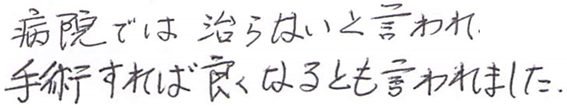 病院では 治らないと言われ.
手術すれば良くなるとも言われました.